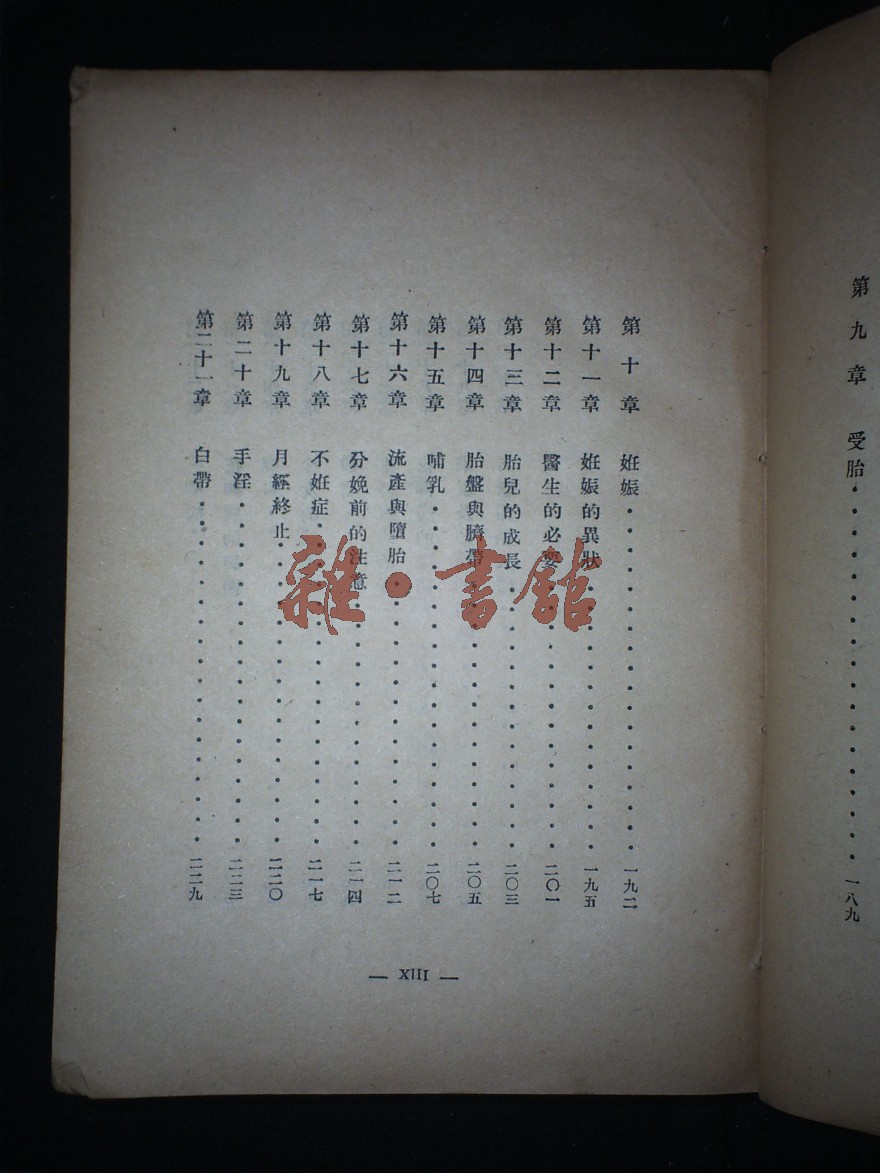 第九章 受胎 一八九
第十章 妊娠 一九二
第十一章 妊娠的異狀 一九五
第十二章 醫生的必要 二〇一
第十三章 胎兒的成長 二〇三
第十四章 胎盤與臍帶 二〇五
第十五章 哺乳 二〇七
第十六章 流產與墮胎 二一二
第十七章 分娩前的注意 二一四
第十八章 不妊症 二一七
第十九章 月經終止 二二〇
第二十章 手淫 二二三
第二十一章 白帶 二二九
— XIII —
雜·書館